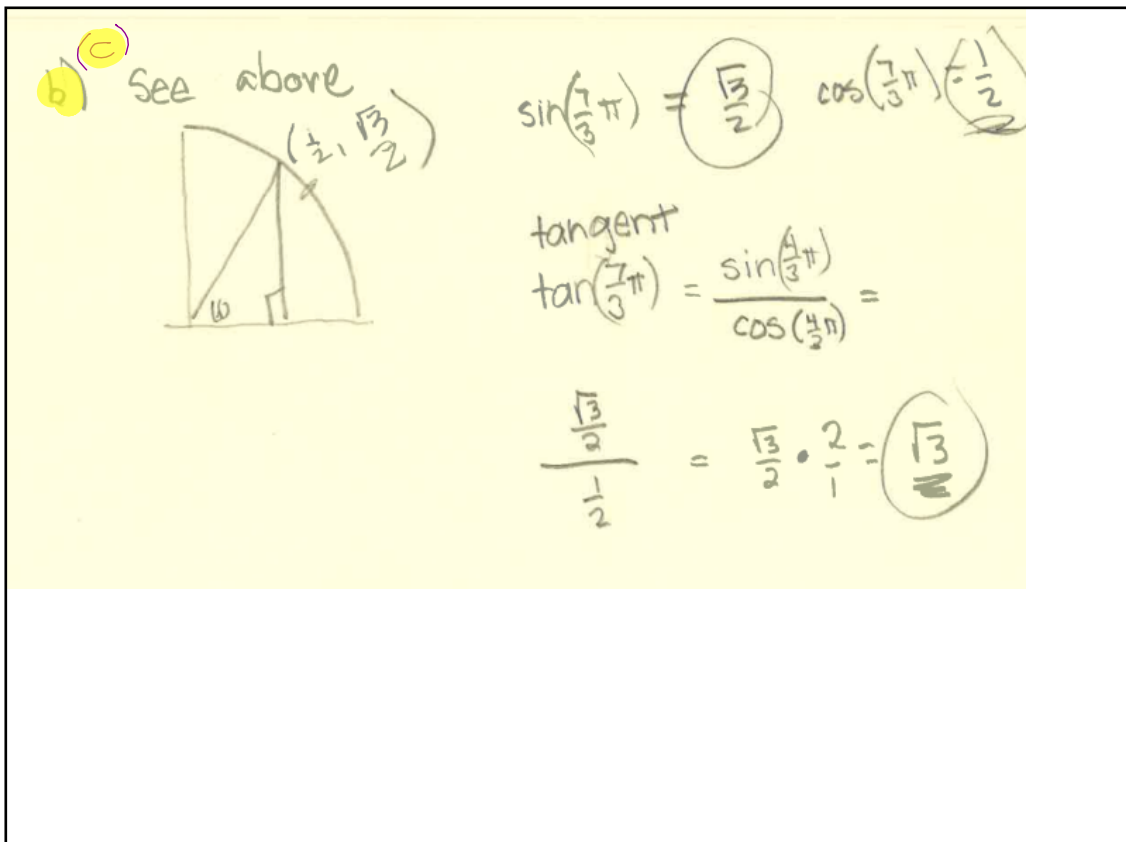 (c)
b) See above
(1/2, √3/2)
60
sin(7/3 π) = √3/2 cos(7/3 π) = 1/2
tangent
tan(7/3 π) = sin(4/3 π) / cos(4/3 π) =
√3/2 / 1/2 = √3/2 · 2/1 = √3